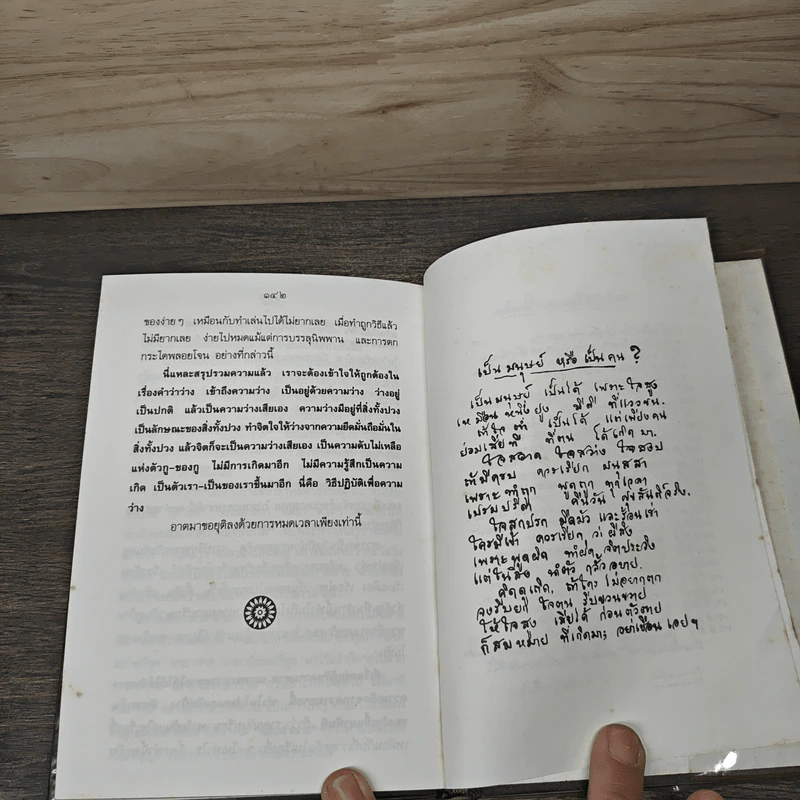 ๑๔๒
ของง่ายๆ เหมือนกับทำเล่นไปได้ไม่ยากเลย เมื่อทำถูกวิธีแล้ว
ไม่มียากเลย ง่ายไปหมดแม้แต่การบรรลุนิพพาน และการตก
กระไดพลอยโจน อย่างที่กล่าวนี้
นี่แหละสรุปรวมความแล้ว เราจะต้องเข้าใจให้ถูกต้องใน
เรื่องคำว่าว่าง เข้าถึงความว่าง เป็นอยู่ด้วยความว่าง ว่างอยู่
เป็นปกติ แล้วเป็นความว่างเสียเอง ความว่างมีอยู่ที่สิ่งทั้งปวง
เป็นลักษณะของสิ่งทั้งปวง ทำจิตใจให้ว่างจากความยึดมั่นถือมั่นใน
สิ่งทั้งปวง แล้วจิตก็จะเป็นความว่างเสียเอง เป็นความดับไม่เหลือ
แห่งตัวกู-ของกู ไม่มีการเกิดมาอีก ไม่มีความรู้สึกเป็นความ
เกิด เป็นตัวเรา-เป็นของเราขึ้นมาอีก นี่คือ วิธีปฏิบัติเพื่อความ
ว่าง
อาตมาขอยุติลงด้วยการหมดเวลาเพียงเท่านี้
เป็นมนุษย์ หรือ เป็นคน ?
เป็นมนุษย์ เป็นได้ เพราะใจสูง
เหมือนหนึ่งยูง มีดี ที่แววขน.
ถ้าใจต่ำ เป็นได้ แต่เพียงคน
ย่อมเสียที ที่ตน ได้เกิดมา.
ใจสอาด ใจสว่าง ใจสงบ
ถ้ามีครบ ควรเรียก มนุสสา
เพราะทำถูก พูดถูก ทุกเวลา
เปรมปรีดา คืนวัน สุขสันต์จริง.
ใจสกปรก มืดมัว และร้อนเร่า
ใครมีเข้า ควรเรียก ว่าผีสิง
เพราะพูดผิด ทำผิด จิตประวิง
แต่ในสิ่ง นำตัว กลั้วอบาย.
คิดดูเถิด, ถ้าใคร ไม่อยากตก
จงรีบยก ใจตน รีบขวนขวาย
ให้ใจสูง เสียได้ ก่อนตัวตาย
ก็สมหมาย ที่เกิดมา; อย่าเชือนเอยฯ